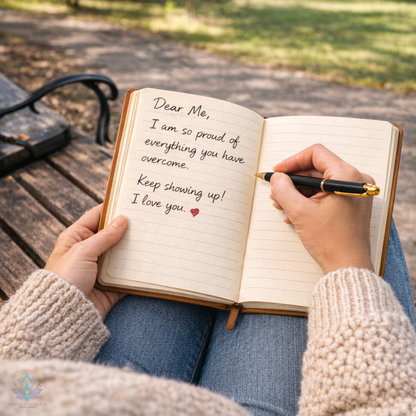 Dear Me,
I am so proud of
everything you have
overcome.
Keep showing up!
I love you. ❤